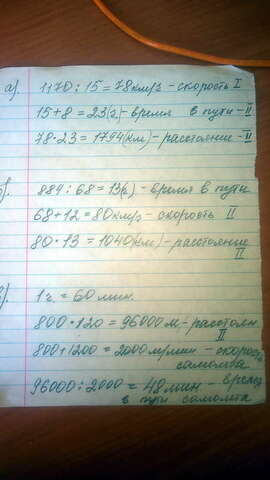 а). 1170 : 15 = 78 км/з - скорость I
15 + 8 = 23(з) - время в пути - II
78 · 23 = 1794 (км) - расстояние - II
б). 884 : 68 = 13(з) - время в пути
68 + 12 = 80 км/з - скорость II
80 · 13 = 1040 (км) - расстояние
II
в). 1 ч. = 60 мин.
800 · 120 = 96000 м - расстоян
II
800 + 1200 = 2000 м/мин - скорость
самолёта
96000 : 2000 = 48 мин - время
в пути самолёта